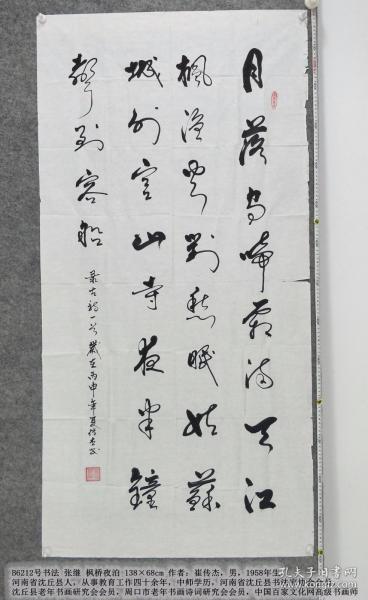 月落乌啼霜满天江
枫渔火对愁眠姑蘇
城外寒山寺夜半鐘
聲到客船
录古诗一首歲在丙申年夏传杰书
B6212号书法 张继 枫桥夜泊 138×68cm 作者:崔传杰,男,1958年生,
河南省沈丘县人,从事教育工作四十余年,中师学历,河南省沈丘县书法家协会会员,
沈丘县老年书画研究会会员,周口市老年书画诗词研究会会员,中国百家文化网高级书画师